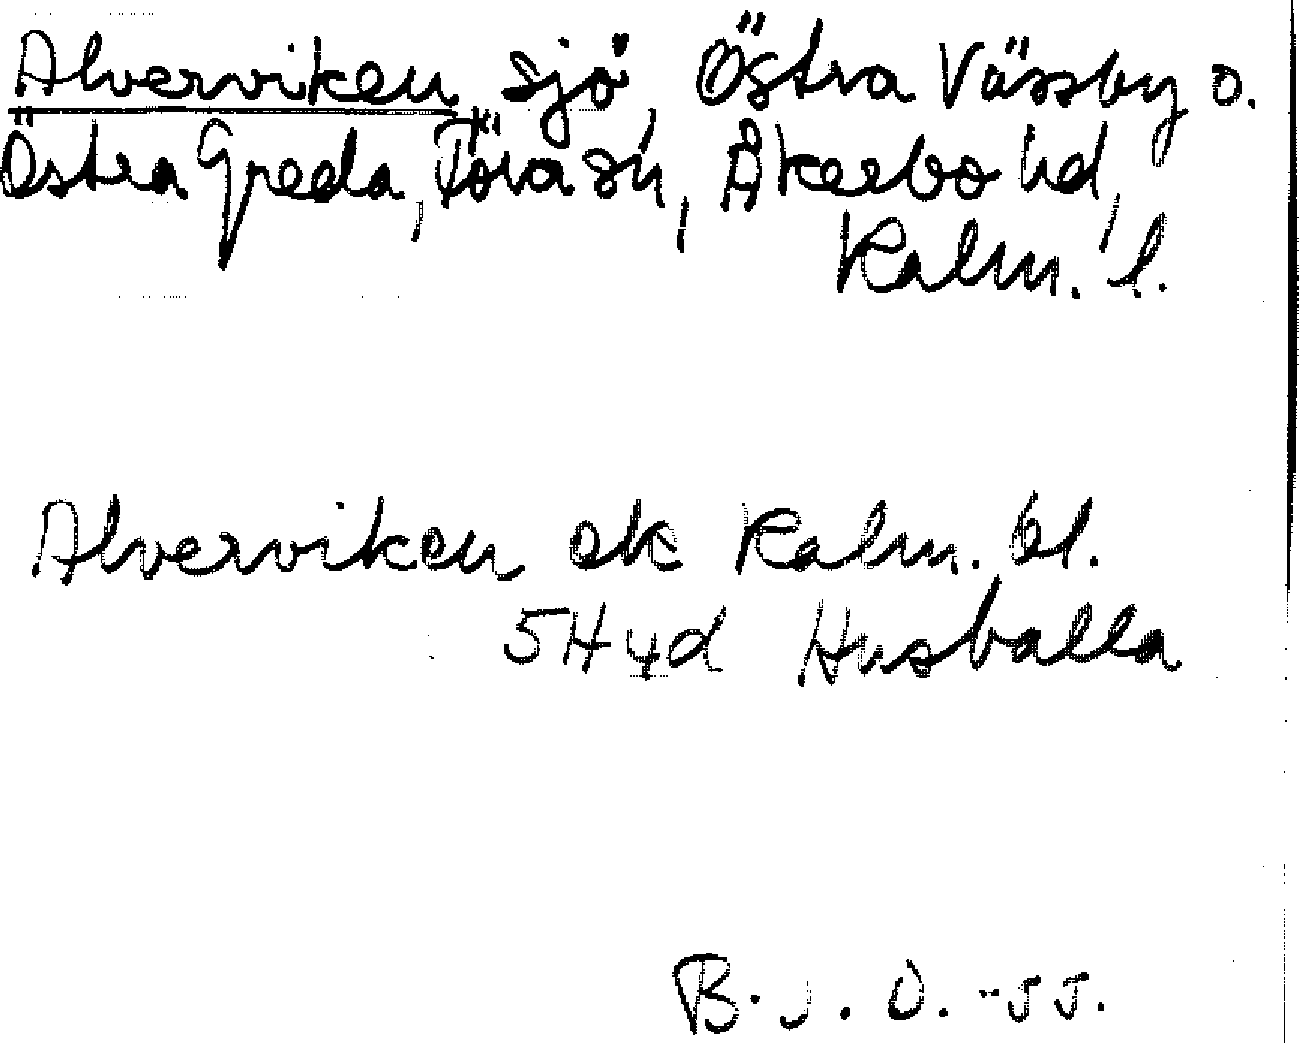 Alverviken, sjö, Östra Vässby o.
Östra Greda, Föra sn, Åkerbo hd,
Kalm. l.
Alverviken ek Kalm. bl.
5H 4d Husvalla
B. J. O. -55.